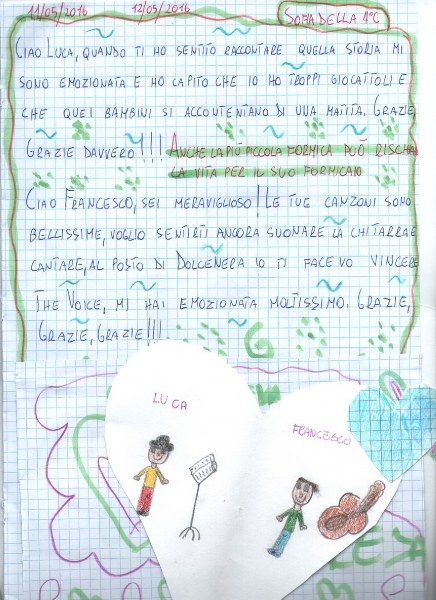 11/05/2016 12/05/2016 SOFIA DELLA 4°C
CIAO LUCA, QUANDO TI HO SENTITO RACCONTARE QUELLA STORIA MI
SONO EMOZIONATA E HO CAPITO CHE IO HO TROPPI GIOCATTOLI E
CHE QUEI BAMBINI SI ACCONTENTANO DI UNA MATITA. GRAZIE,
GRAZIE DAVVERO!!! ANCHE LA PIÙ PICCOLA FORMICA PUÒ RISCHIA
LA VITA PER IL SUO FORMICAIO
CIAO FRANCESCO, SEI MERAVIGLIOSO! LE TUE CANZONI SONO
BELLISSIME, VOGLIO SENTIRTI ANCORA SUONARE LA CHITARRA E
CANTARE, AL POSTO DI DOLCENERA IO TI FACEVO VINCERE
THE VOICE, MI HAI EMOZIONATA MOLTISSIMO. GRAZIE,
GRAZIE, GRAZIE!!!
G
LUCA
FRANCESCO